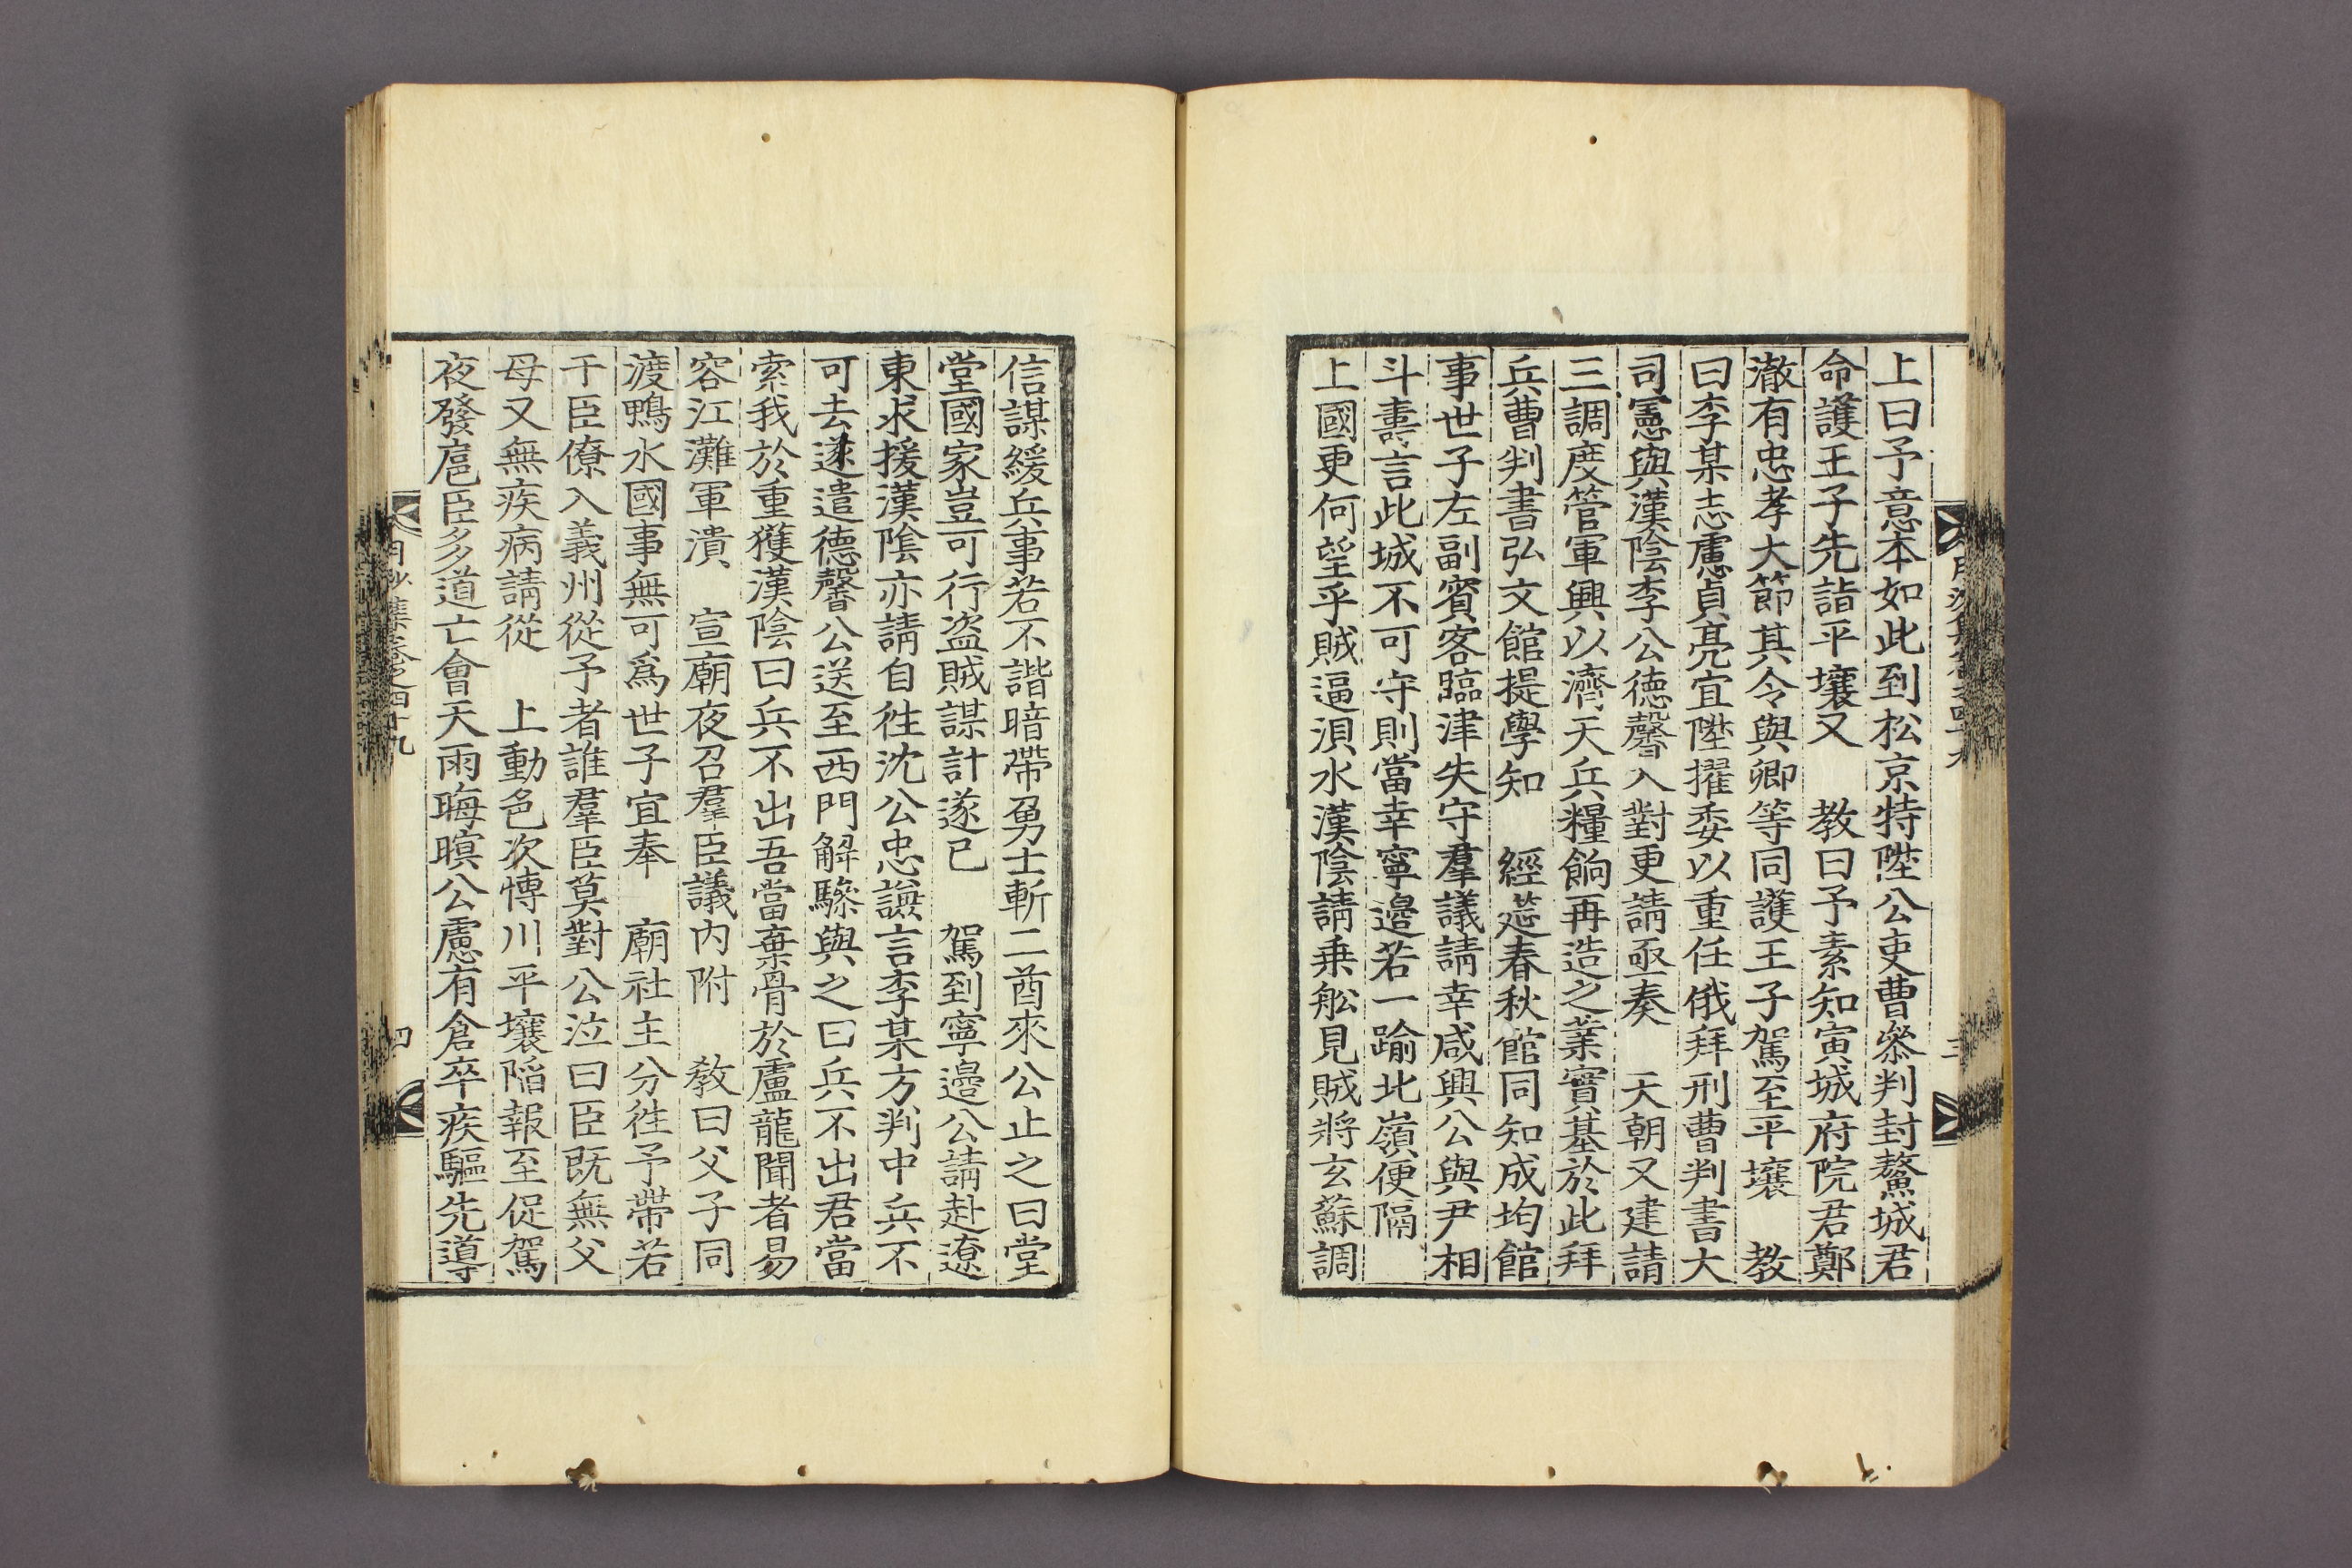 上曰予意本如此到松京特陞公吏曹叅判封鰲城君
命護王子先詣平壤又　教曰予素知寅城府院君鄭
澈有忠孝大節其令與卿等同護王子駕至平壤　教
曰李某志慮貞亮宜陞擢委以重任俄拜刑曹判書大
司憲與漢陰李公德馨入對更請亟奏　天朝又建請
三調度管軍興以濟天兵糧餉再造之業實基於此拜
兵曹判書弘文館提學知　經筵春秋館同知成均館
事世子左副賓客臨津失守羣議請幸咸興公與尹相
斗壽言此城不可守則當幸寧邊若一踰北嶺便隔
上國更何望乎賊逼浿水漢陰請乗舩見賊將玄蘇調
信謀緩兵事若不諧暗帶勇士斬二酋來公止之曰堂
堂國家豈可行盜賊謀計遂已　駕到寧邊公請赴遼
東求援漢陰亦請自徃沈公忠謙言李某方判中兵不
可去遂遣德馨公送至西門解驂與之曰兵不出君當
索我於重獲漢陰曰兵不出吾當棄骨於盧龍聞者易
容江灘軍潰　宣廟夜召羣臣議內附　敎曰父子同
渡鴨水國事無可爲世子宜奉　廟社主分徃予帶若
干臣僚入義州從予者誰羣臣莫對公泣曰臣既無父
母又無疾病請從　上動色次博川平壤陷報至促駕
夜發扈臣多道亡會天雨晦暝公慮有倉卒疾驅先導
月沙集卷之四十九
四